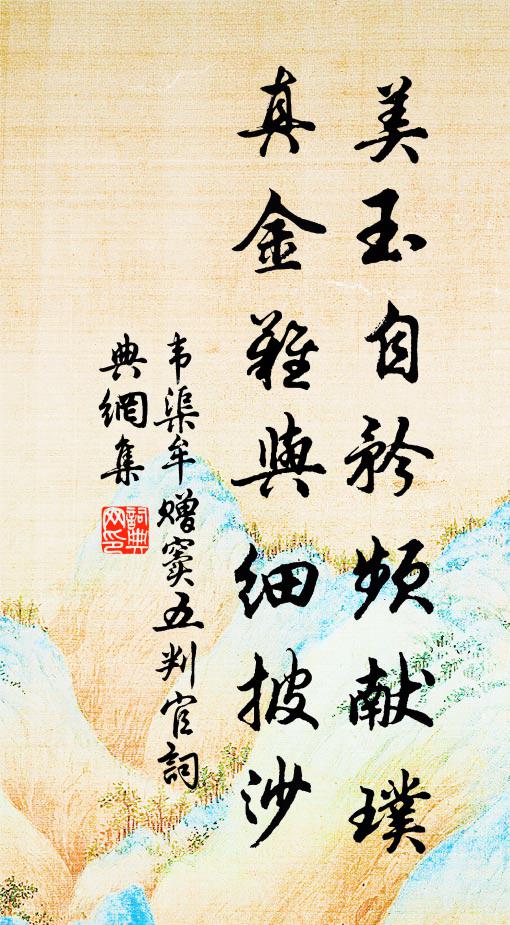 美玉自矜频献璞
真金难與细披沙
韦渠牟赠窦五判官詞
典網集
詞典網印